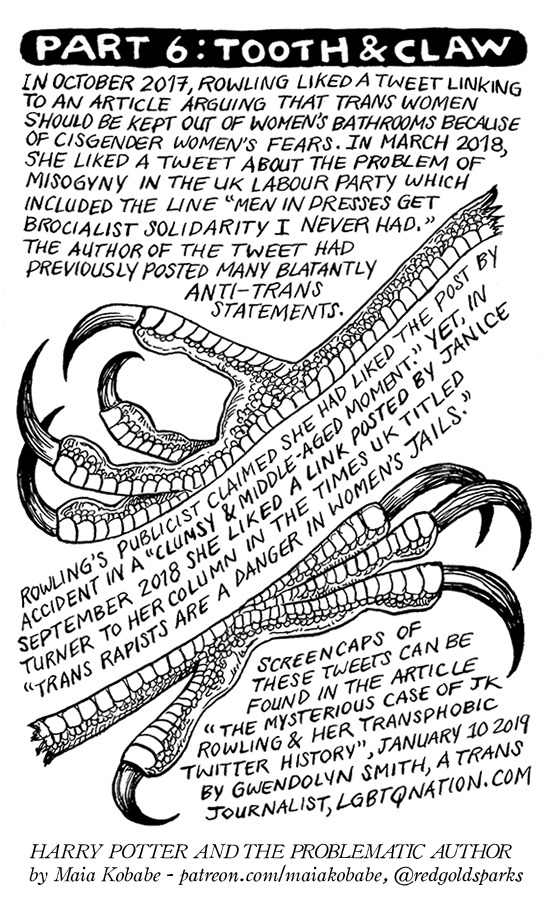 PART 6: TOOTH & CLAW
IN OCTOBER 2017, ROWLING LIKED A TWEET LINKING
TO AN ARTICLE ARGUING THAT TRANS WOMEN
SHOULD BE KEPT OUT OF WOMEN'S BATHROOMS BECAUSE
OF CISGENDER WOMEN'S FEARS. IN MARCH 2018,
SHE LIKED A TWEET ABOUT THE PROBLEM OF
MISOGYNY IN THE UK LABOUR PARTY WHICH
INCLUDED THE LINE "MEN IN DRESSES GET
BROCIALIST SOLIDARITY I NEVER HAD."
THE AUTHOR OF THE TWEET HAD
PREVIOUSLY POSTED MANY BLATANTLY
ANTI-TRANS
STATEMENTS.
ROWLING'S PUBLICIST CLAIMED SHE HAD LIKED THE POST BY
ACCIDENT IN A "CLUMSY & MIDDLE-AGED MOMENT." YET, IN
SEPTEMBER 2018 SHE LIKED A LINK POSTED BY JANICE
TURNER TO HER COLUMN IN THE TIMES UK TITLED
"TRANS RAPISTS ARE A DANGER IN WOMEN'S JAILS."
SCREENCAPS OF
THESE TWEETS CAN BE
FOUND IN THE ARTICLE
"THE MYSTERIOUS CASE OF JK
ROWLING & HER TRANSPHOBIC
TWITTER HISTORY", JANUARY 10 2019
BY GWENDOLYN SMITH, A TRANS
JOURNALIST, LGBTQNATION.COM
HARRY POTTER AND THE PROBLEMATIC AUTHOR
by Maia Kobabe - patreon.com/maiakobabe, @redgoldsparks